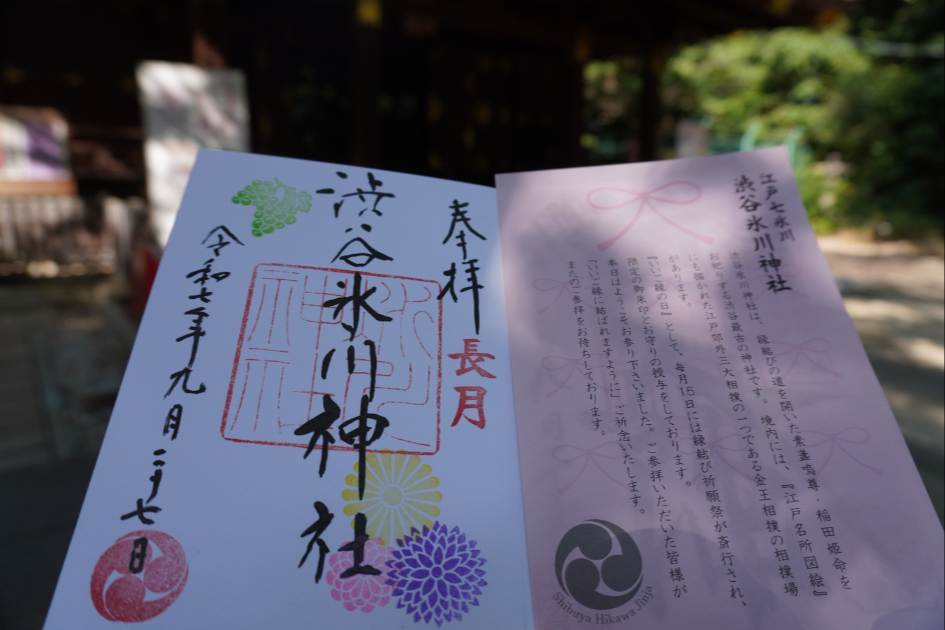 奉拝
長月
渋谷氷川神社
令和七年九月二十七日
江戸七氷川
渋谷氷川神社
渋谷氷川神社は、縁結びの道を開いた素盞嗚尊・稲田姫命を
お祀りする渋谷最古の神社です。境内には、『江戸名所図絵』
にも描かれた江戸郊外三大相撲の一つである金王相撲の相撲場
があります。
『いい縁の日』として、毎月15日には縁結び祈願祭が斎行され、
限定の御朱印とお守りの授与をしております。
本日はようこそお参り下さいました。ご参拝いただいた皆様が
「いいご縁に結ばれますように」ご祈念いたします。
またのご参拝をお待ちしております。
Shibuya Hikawa Jinja